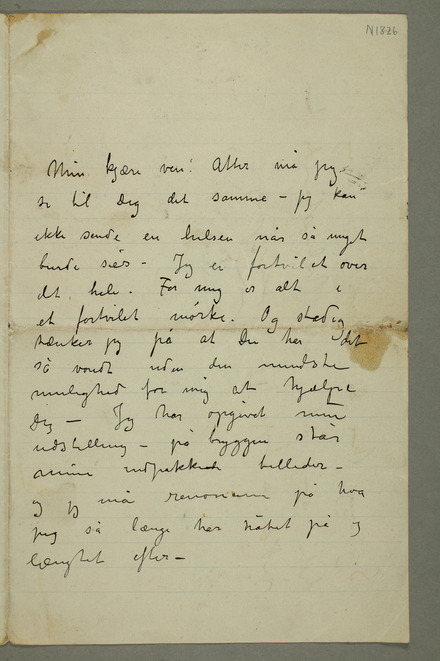 N1826
Min kjære ven! Atter må jeg
si til Dig det samme – jeg kan
ikke sende en hilsen når så meget
burde siés – Jeg er fortvilet over
det hele. For mig er alt i
et fortvilet mørke. Og stadig
tænker jeg på at Du har det
så vondt uden den mindste
mulighed for mig at hjælpe
Dig – Jeg har opgivet min
udstilling – på bryggen står
mine indpakkede billeder –
og jeg må renonsere på hva
jeg så længe har håbet på og
længtet efter –